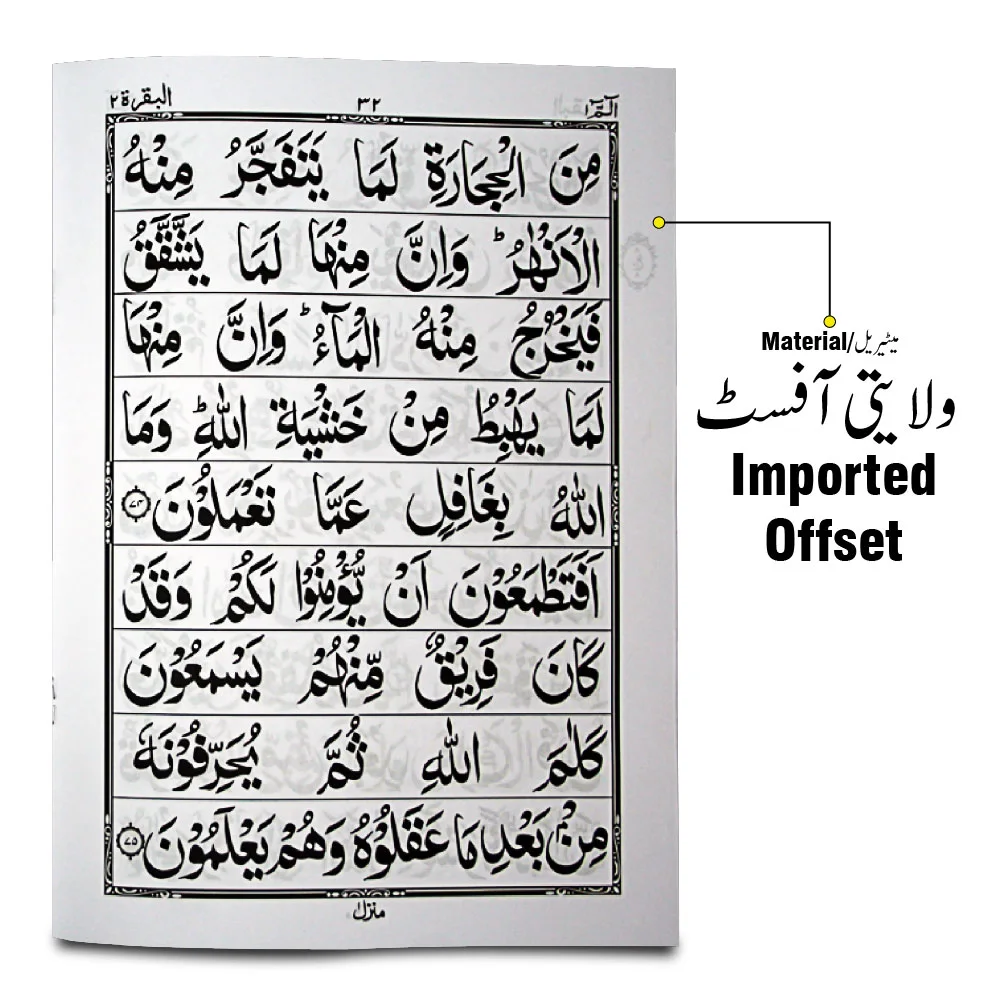 الٓمّٓ ١
٣٢
البقرة ٢
مِنَ الْحِجَارَةِ لَمَا يَتَفَجَّرُ مِنْهُ
الْاَنْهٰرُ ؕ وَاِنَّ مِنْهَا لَمَا يَشَّقَّقُ
فَيَخْرُجُ مِنْهُ الْمَآءُ ؕ وَاِنَّ مِنْهَا
لَمَا يَهْبِطُ مِنْ خَشْيَةِ اللّٰهِ ؕ وَمَا
اللّٰهُ بِغَافِلٍ عَمَّا تَعْمَلُوْنَ ﴿٧٤﴾
اَفَتَطْمَعُوْنَ اَنْ يُّؤْمِنُوْا لَكُمْ وَقَدْ
كَانَ فَرِيْقٌ مِّنْهُمْ يَسْمَعُوْنَ
كَلٰمَ اللّٰهِ ثُمَّ يُحَرِّفُوْنَهٗ
مِنْۢ بَعْدِ مَا عَقَلُوْهُ وَهُمْ يَعْلَمُوْنَ ﴿٧٥﴾
منزل ١
Material/میٹیریل
ولایتی آفسٹ
Imported
Offset